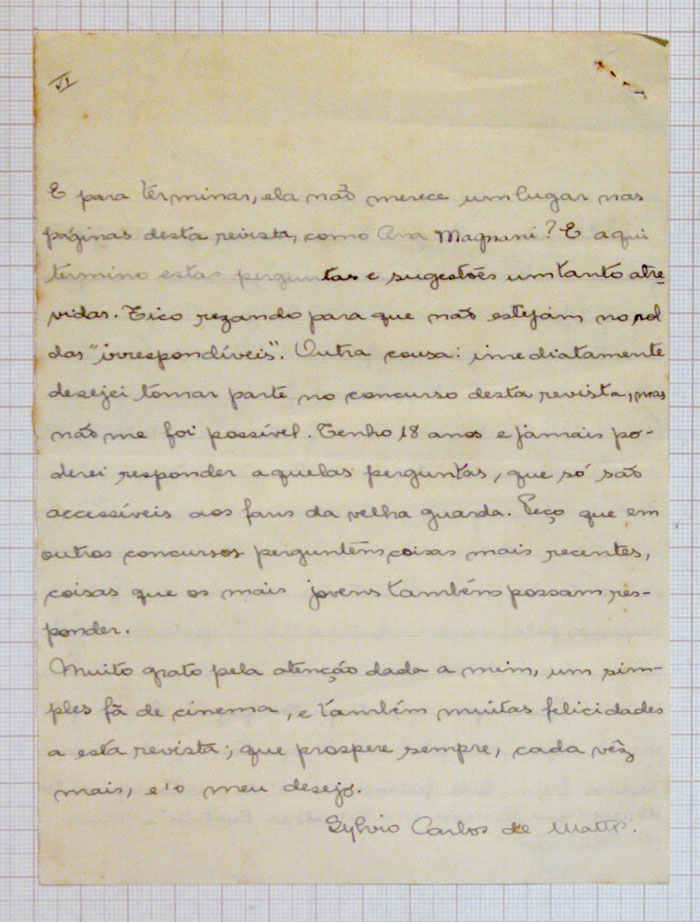 VI
E para terminar, ela não merece um lugar nas
páginas desta revista, como Ana Magnani? E aqui
termino estas perguntas e sugestões um tanto atre-
vidas. Fico rezando para que não estejam no rol
das "irrespondíveis". Outra cousa: imediatamente
desejei tomar parte no concurso desta revista, mas
não me foi possível. Tenho 18 anos e jamais po-
derei responder aquelas perguntas, que só são
accessíveis aos fans da velha guarda. Peço que em
outros concursos perguntem coisas mais recentes,
coisas que os mais jovens também possam res-
ponder.
Muito grato pela atenção dada a mim, um sim-
ples fã de cinema, e também muitas felicidades
a esta revista; que prospere sempre, cada vêz
mais, e'o meu desejo.
Sylvio Carlos de Mattos.